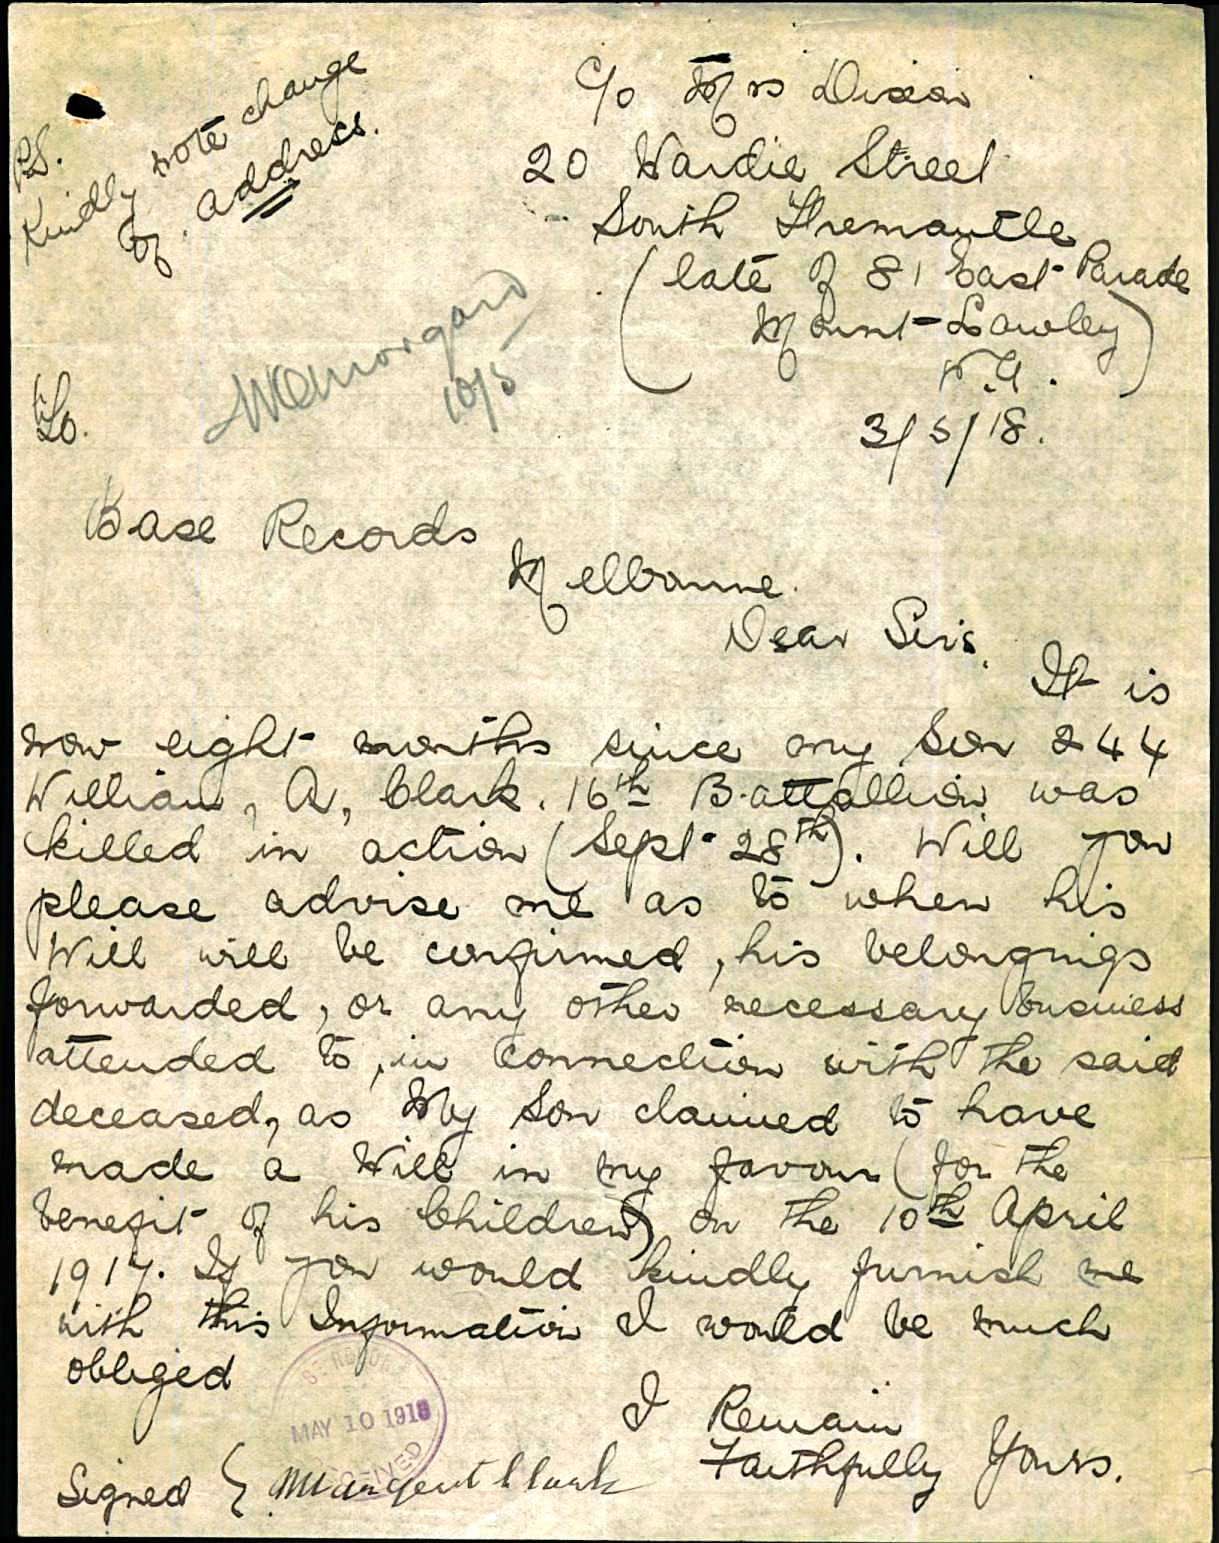 P.S.
Kindly note change
of address.
C/o Mrs Dixon
20 Wardie Street
South Fremantle
(late of 81 East Parade
Mount-Lawley)
W.A.
3/5/18.
10/5
To.
Base Records
Melbourne.
Dear Sirs.
It is
now eight months since my Son 244
William, A, Clark. 16th Battallion was
killed in action (Sept 28th). Will you
please advise me as to when his
Will will be confirmed, his belongings
forwarded, or any other necessary business
attended to, in connection with the said
deceased, as My Son claimed to have
made a Will in my favour (for the
benefit of his Children) on the 10th April
1917. If you would kindly furnish me
with this Information I would be much
obliged
I Remain
Faithfully Yours.
Signed { Margaret Clark
MAY 10 1918
RECEIVED